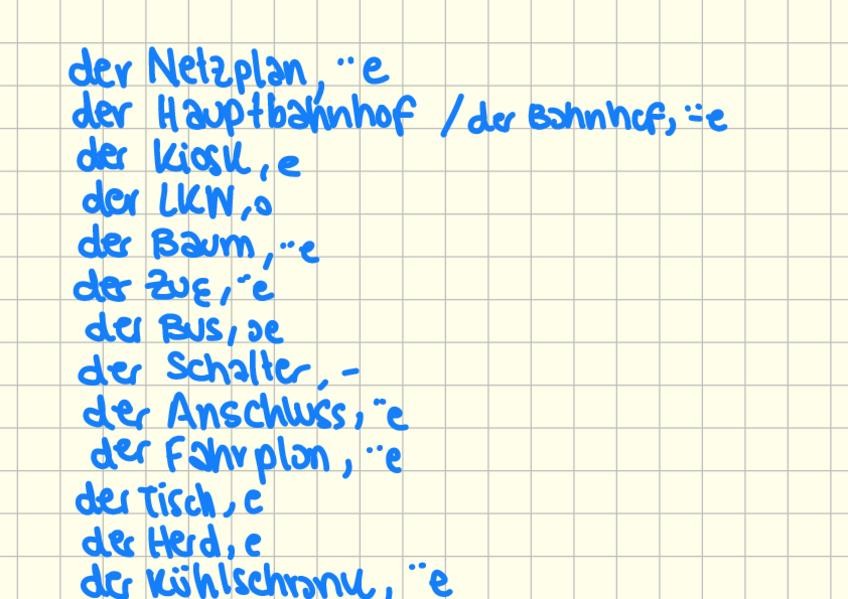 der Netzplan, ¨e
der Hauptbahnhof / der Bahnhof, ¨e
der Kiosk, e
der LKW, s
der Baum, ¨e
der Zug, ¨e
der Bus, se
der Schalter, -
der Anschluss, ¨e
der Fahrplan, ¨e
der Tisch, e
der Herd, e
der Kühlschrank, ¨e